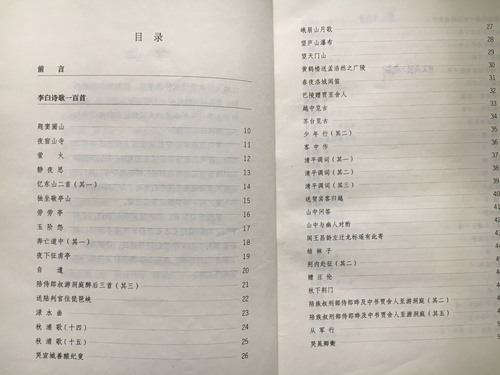 目 录
前 言
李白诗歌一百首
题窦圌山 10
夜宿山寺 11
萤 火 12
静夜思 13
忆东山二首（其一） 14
独坐敬亭山 15
劳劳亭 16
玉阶怨 17
奔亡道中（其一） 18
夜下征虏亭 19
自 遣 20
陪侍郎叔游洞庭醉后三首（其三） 21
送陆判官往琵琶峡 22
渌水曲 23
秋浦歌（十四） 24
秋浦歌（十五） 25
哭宣城善酿纪叟 26
峨眉山月歌 27
望庐山瀑布 28
望天门山 29
黄鹤楼送孟浩然之广陵 30
春夜洛城闻笛 31
巴陵赠贾至舍人 32
越中览古 33
苏台览古 34
少年行（其二） 35
客中作 36
清平调词（其一） 37
清平调词（其二）
清平调词（其三）
送贺宾客归越
山中问答
山中与幽人对酌
闻王昌龄左迁龙标遥有此寄
结袜子
荆门
赠汪伦
秋下荆门
陪族叔刑部侍郎晔及中书贾舍人至游洞庭（其二）
陪族叔刑部侍郎晔及中书贾舍人至游洞庭（其五）
从军行
哭晁卿衡